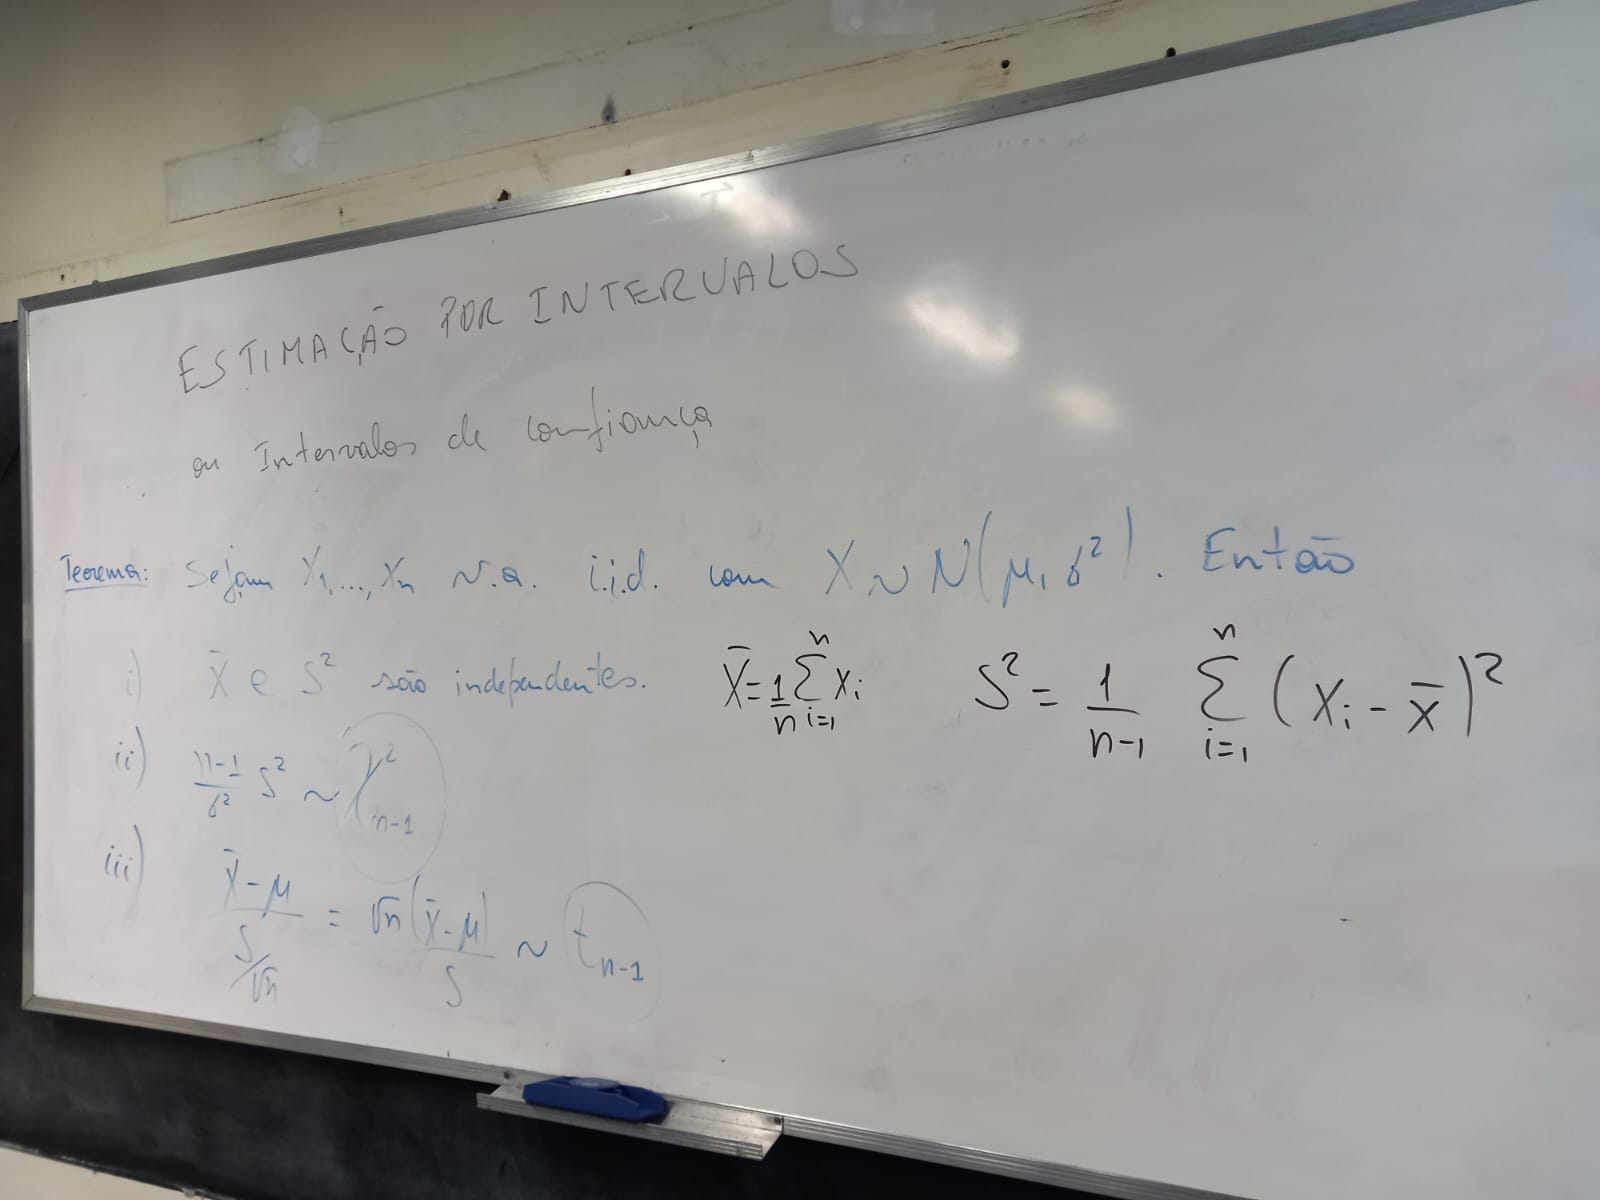 ESTIMAÇÃO POR INTERVALOS
ou Intervalos de confiança
Teorema: Sejam X₁,..., Xₙ v.a. i.i.d. com X ~ N(μ, σ²). Então
i) X̄ e S² são independentes. X̄ = 1/n Σᵢ₌₁ⁿ Xᵢ S² = 1/(n-1) Σᵢ₌₁ⁿ (Xᵢ - X̄)²
ii) (n-1)/σ² S² ~ χ²ₙ₋₁
iii) (X̄-μ)/(S/√n) = √n(X̄-μ)/S ~ tₙ₋₁